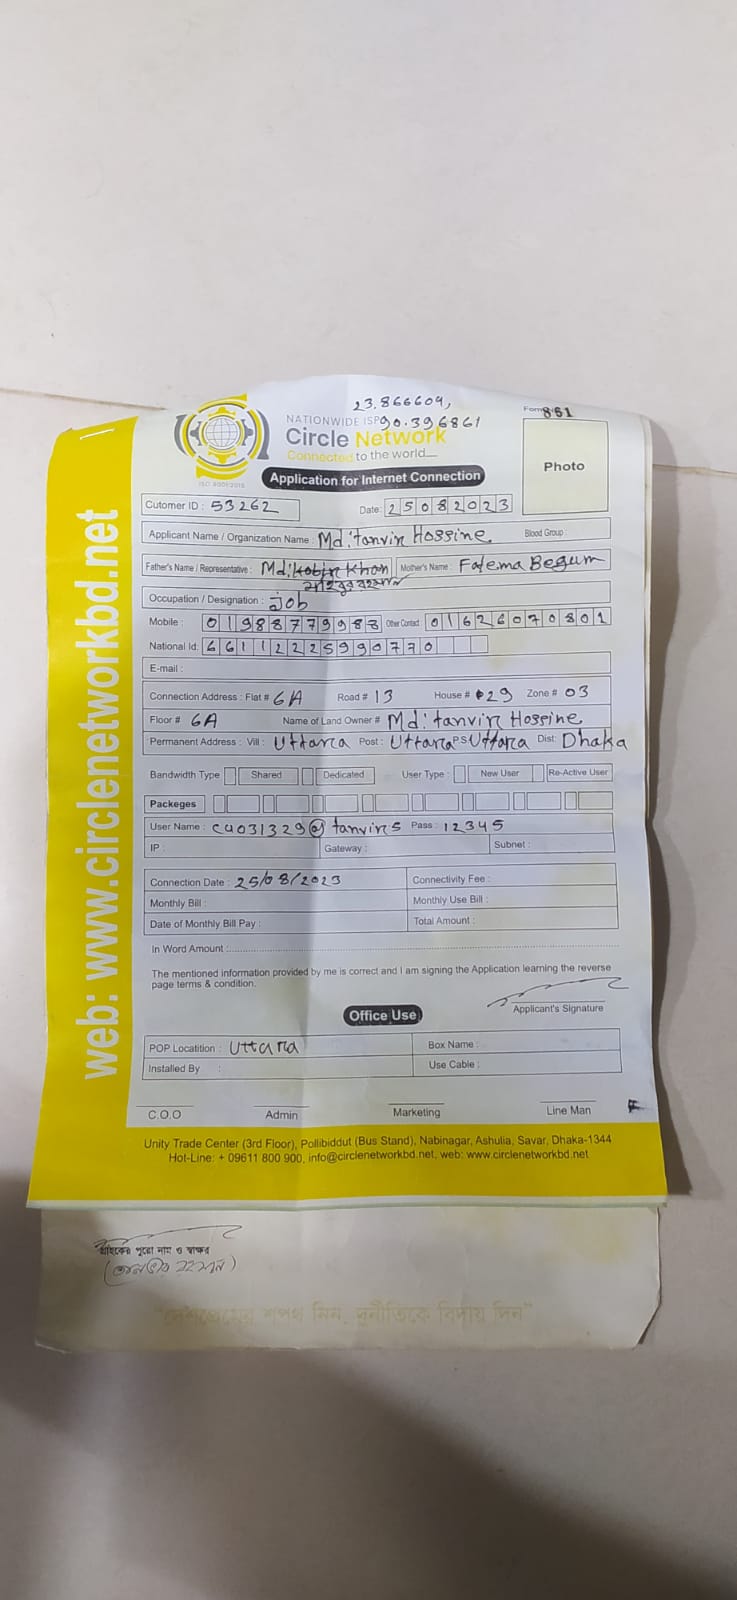 23.866609,
90.396861
Form 861
NATIONWIDE ISP
Circle Network
Connected to the world
ISO 9001:2015
Photo
Application for Internet Connection
web: www.circlenetworkbd.net
Cutomer ID : 53262 Date: 25082023
Applicant Name / Organization Name : Md: tanvin Hossine Blood Group :
Father's Name / Representative : Md: Kobin Khan Mother's Name : Fatema Begum
Occupation / Designation : Job
Mobile : 01988779983 Other Contact : 01626070801
National Id: 66112225990770
E-mail :
Connection Address : Flat # 6A Road # 13 House # 29 Zone # 03
Floor # 6A Name of Land Owner # Md: tanvin Hossine
Permanent Address : Vill : Uttara Post : Uttara PS Uttara Dist: Dhaka
Bandwidth Type Shared Dedicated User Type : New User Re-Active User
Packeges
User Name : cu031329@tanvins Pass : 12345
IP : Gateway : Subnet :
Connection Date : 25/08/2023 Connectivity Fee :
Monthly Bill : Monthly Use Bill :
Date of Monthly Bill Pay : Total Amount :
In Word Amount :
The mentioned information provided by me is correct and I am signing the Application learning the reverse
page terms & condition.
Applicant's Signature
Office Use
POP Locatition : Uttara Box Name :
Installed By : Use Cable :
C.O.O Admin Marketing Line Man
Unity Trade Center (3rd Floor), Pollibiddut (Bus Stand), Nabinagar, Ashulia, Savar, Dhaka-1344
Hot-Line: + 09611 800 900, info@circlenetworkbd.net, web: www.circlenetworkbd.net
গ্রাহকের পুরো নাম ও স্বাক্ষর
"দেশপ্রেমের শপথ নিন, দুর্নীতিকে বিদায় দিন"